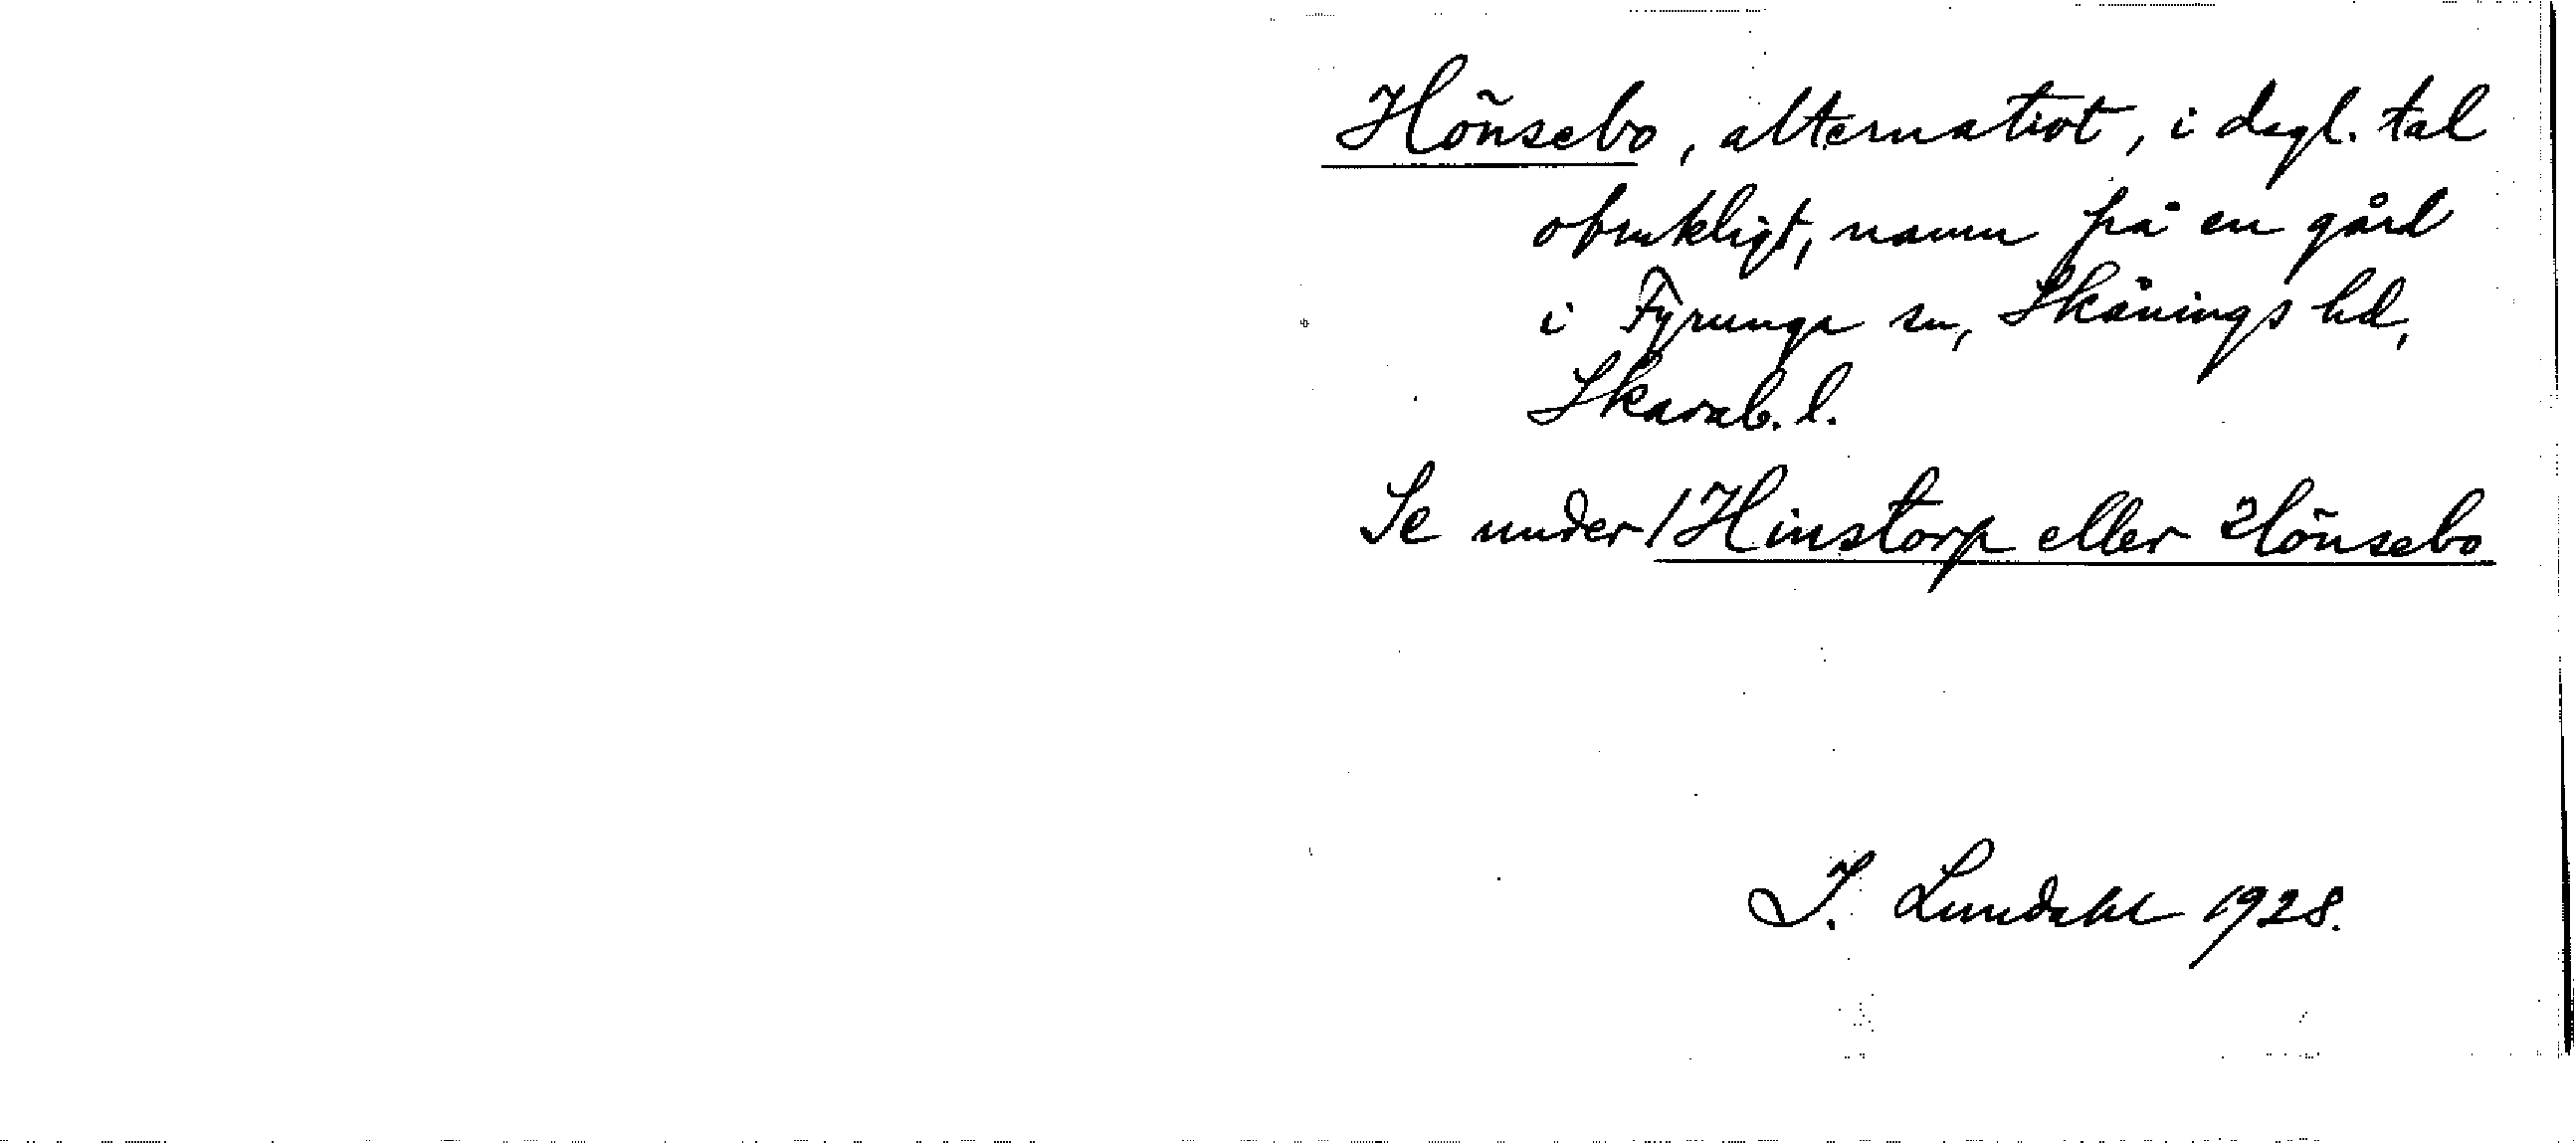 Hönsebo, alternativt, i dagl. tal
obrukligt, namn på en gård
i Fyrunga sn, Skånings hd,
Skarab. l.
Se under/Hinstorp eller Hönsebo
I. Lundahl 1928.